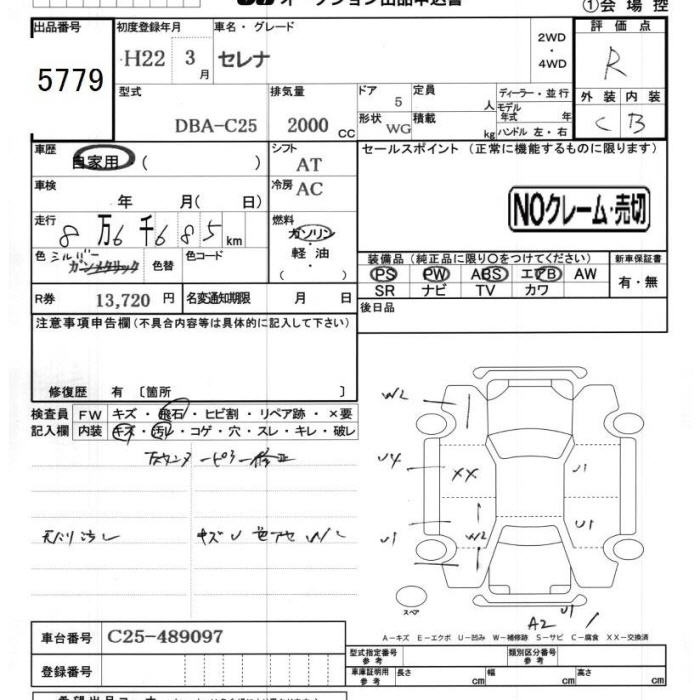 オークション出品申込書
①会場控
出品番号
5779
初度登録年月
H22 3月
車名・グレード
セレナ
2WD
・
4WD
評価点
R
型式
DBA-C25
排気量
2000 CC
ドア
5
定員
人
形状 WG
積載
kg
ディーラー・並行
モデル年式 年
ハンドル 左・右
外装 内装
C B
車歴
自家用 ( )
シフト
AT
セールスポイント (正常に機能するものに限ります)
車検
年 月( 日)
冷房 AC
NOクレーム・売切
走行
8万6千685km
燃料
ガソリン
・
軽油
( )
色 シルバー
ガンメタリック
色替
色コード
装備品 (純正品に限り〇をつけてください)
PS PW ABS エアB AW
SR ナビ TV カワ
新車保証書
有・無
R券 13,720 円
名変通知期限 月 日
後日品
注意事項申告欄 (不具合内容等は具体的に記入して下さい)
修復歴 有 〔箇所 〕
検査員
記入欄
FW キズ・飛石・ヒビ割・リペア跡・×要
内装 キズ・汚レ・コゲ・穴・スレ・キレ・破レ
キズ U 色アセ W2
W2
U4
U1
XX
W2
U1
U1
A2
U1
スペア
A-キズ E-エクボ U-凹み W-補修跡 S-サビ C-腐食 XX-交換済
車台番号 C25-489097
登録番号
型式指定番号
参考
類別区分番号
参考
車庫証明用
参考
長さ cm
幅 cm
高さ cm
希望出品コーナー